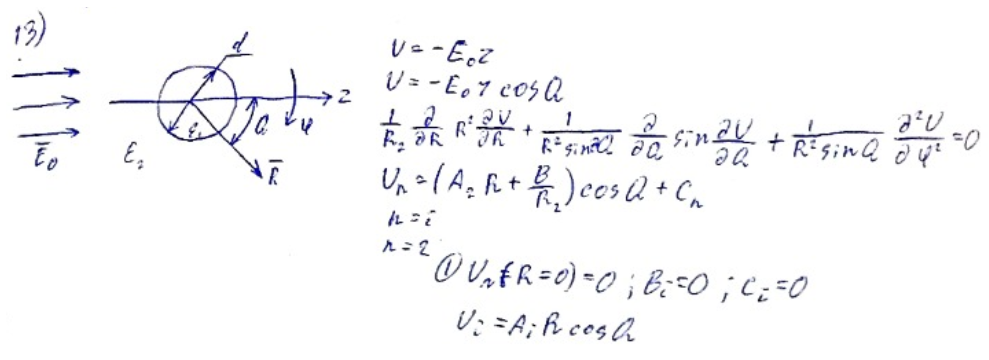 13)
d
z
Q
φ
ε₁
ε₂
E̅₀
R̅
U = -E₀z
U = -E₀ r cosQ
1/R₂ ∂/∂R R² ∂U/∂R + 1/(R² sin²Q) ∂/∂Q sin ∂U/∂Q + 1/(R² sinQ) ∂²U/∂φ² = 0
Uₙ = (A₂ R + B/R₂) cosQ + Cₙ
n = i
n = 2
① Uₙ(R=0) = 0 ; Bᵢ = 0 ; Cᵢ = 0
Uᵢ = Aᵢ R cosQ